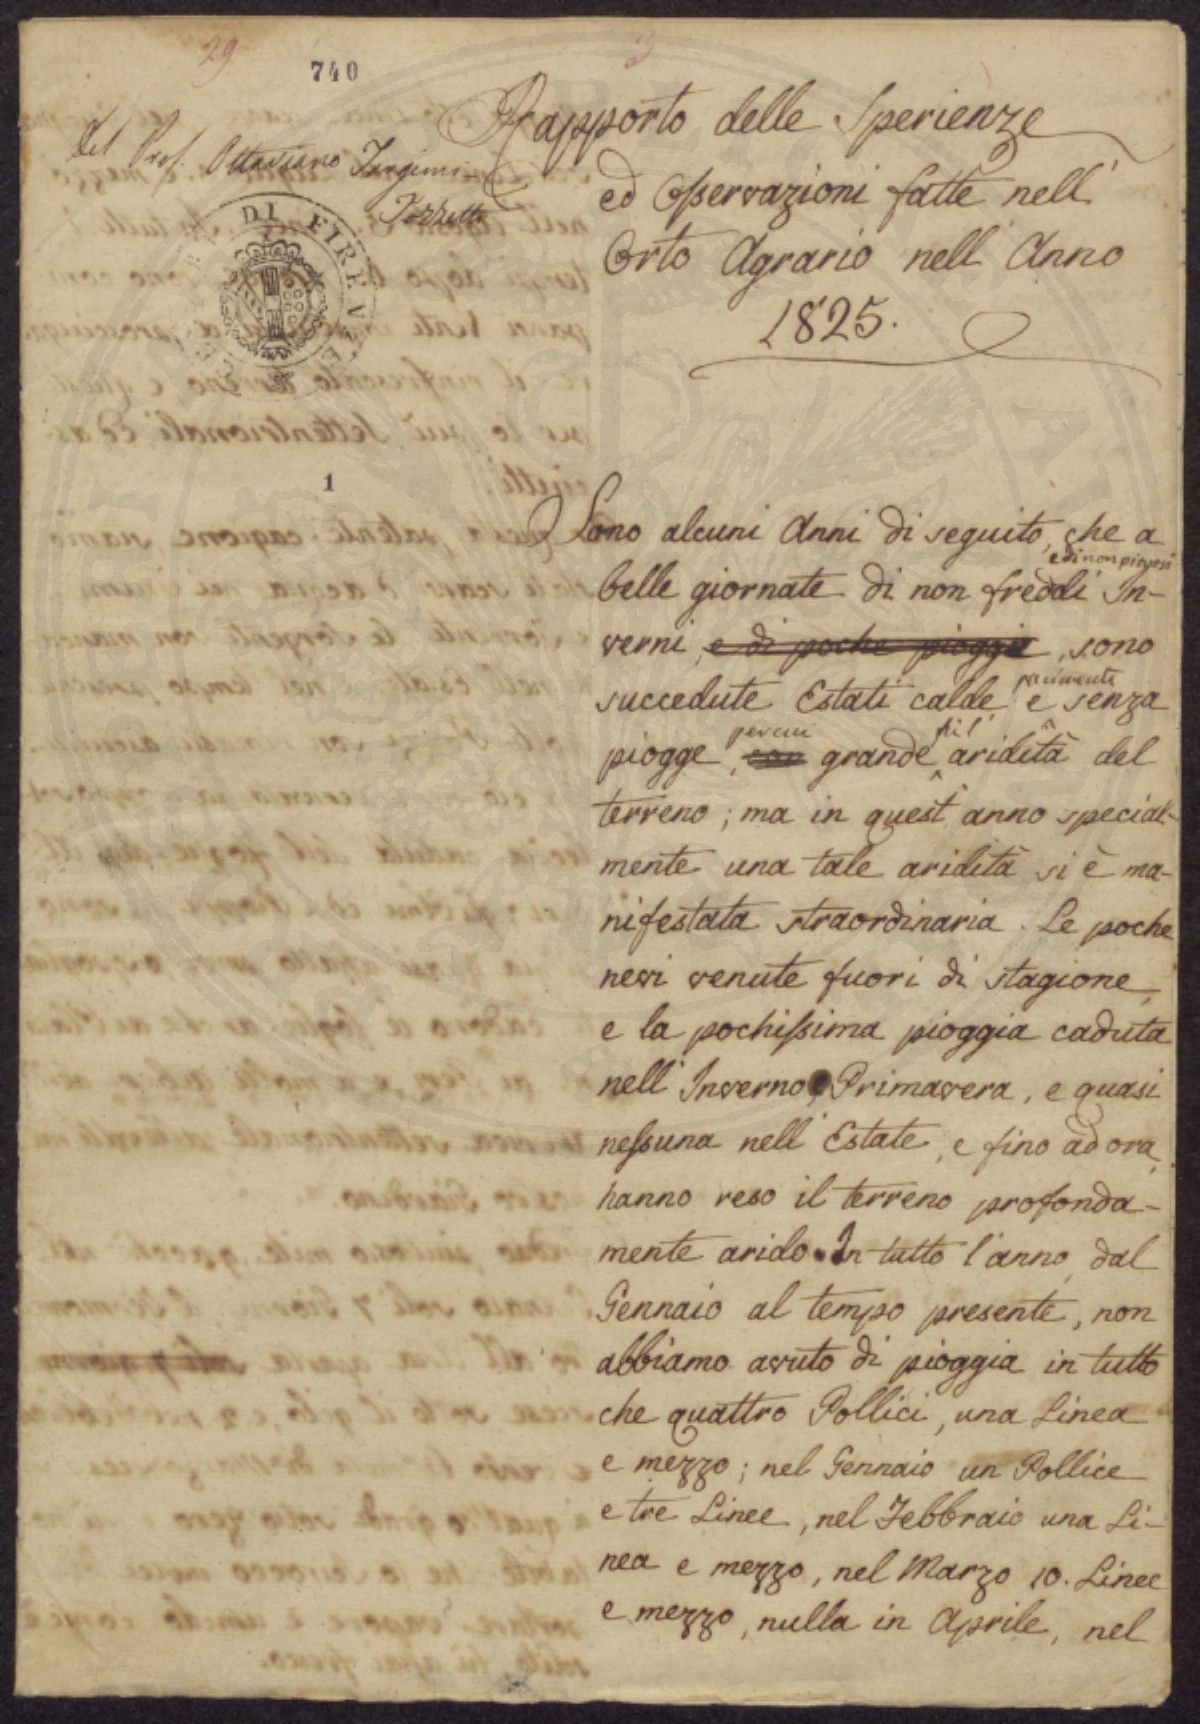 29
740
3
Del Prof. Ottaviano Targioni
Tozzetti
DI FIRENZE
Rapporto delle Sperienze
ed Osservazioni fatte nell'
Orto Agrario nell' Anno
1825.
1
Sono alcuni Anni di seguito, che a
e di non piovosi
belle giornate di non freddi In-
verni, e di poche pioggie, sono
parimente
succedute Estati calde, e senza
per cui
piogge, con grande aridità del
terreno; ma in quest' anno special-
mente una tale aridità si è ma-
nifestata straordinaria. Le poche
nevi venute fuori di stagione,
e la pochissima pioggia caduta
nell' Inverno, Primavera, e quasi
nessuna nell' Estate, e fino ad ora,
hanno reso il terreno profonda-
mente arido. In tutto l'anno, dal
Gennaio al tempo presente, non
abbiamo avuto di pioggia in tutto
che quattro Pollici, una Linea
e mezzo; nel Gennaio un Pollice
e tre Linee, nel Febbraio una Li-
nea e mezzo, nel Marzo 10. Linee
e mezzo, nulla in Aprile, nel